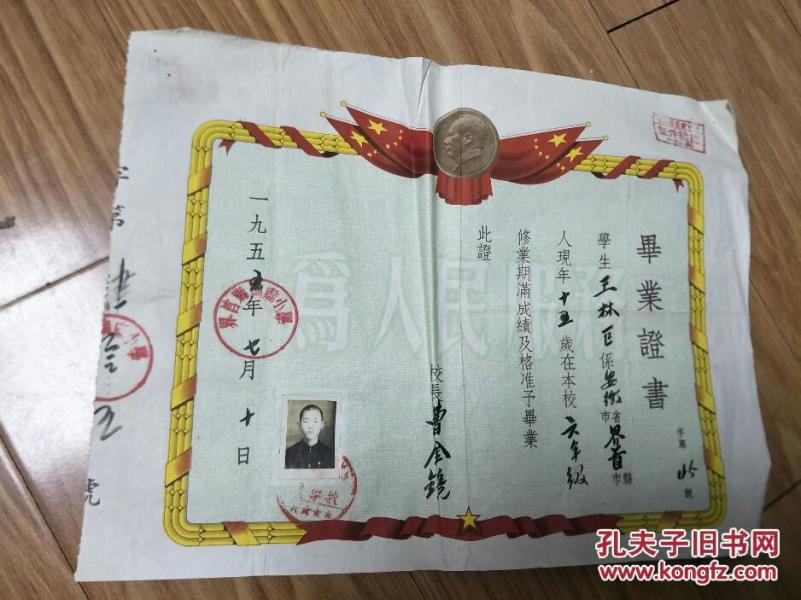 畢業證書
字第45號
學生王林臣係安徽省市界首縣市
人現年十五歲在本校六年級
修業期滿成績及格准予畢業
此證
校長曹金鏡
一九五五年七月十日
為人民服務
字第
號
孔夫子旧书网
www.kongfz.com